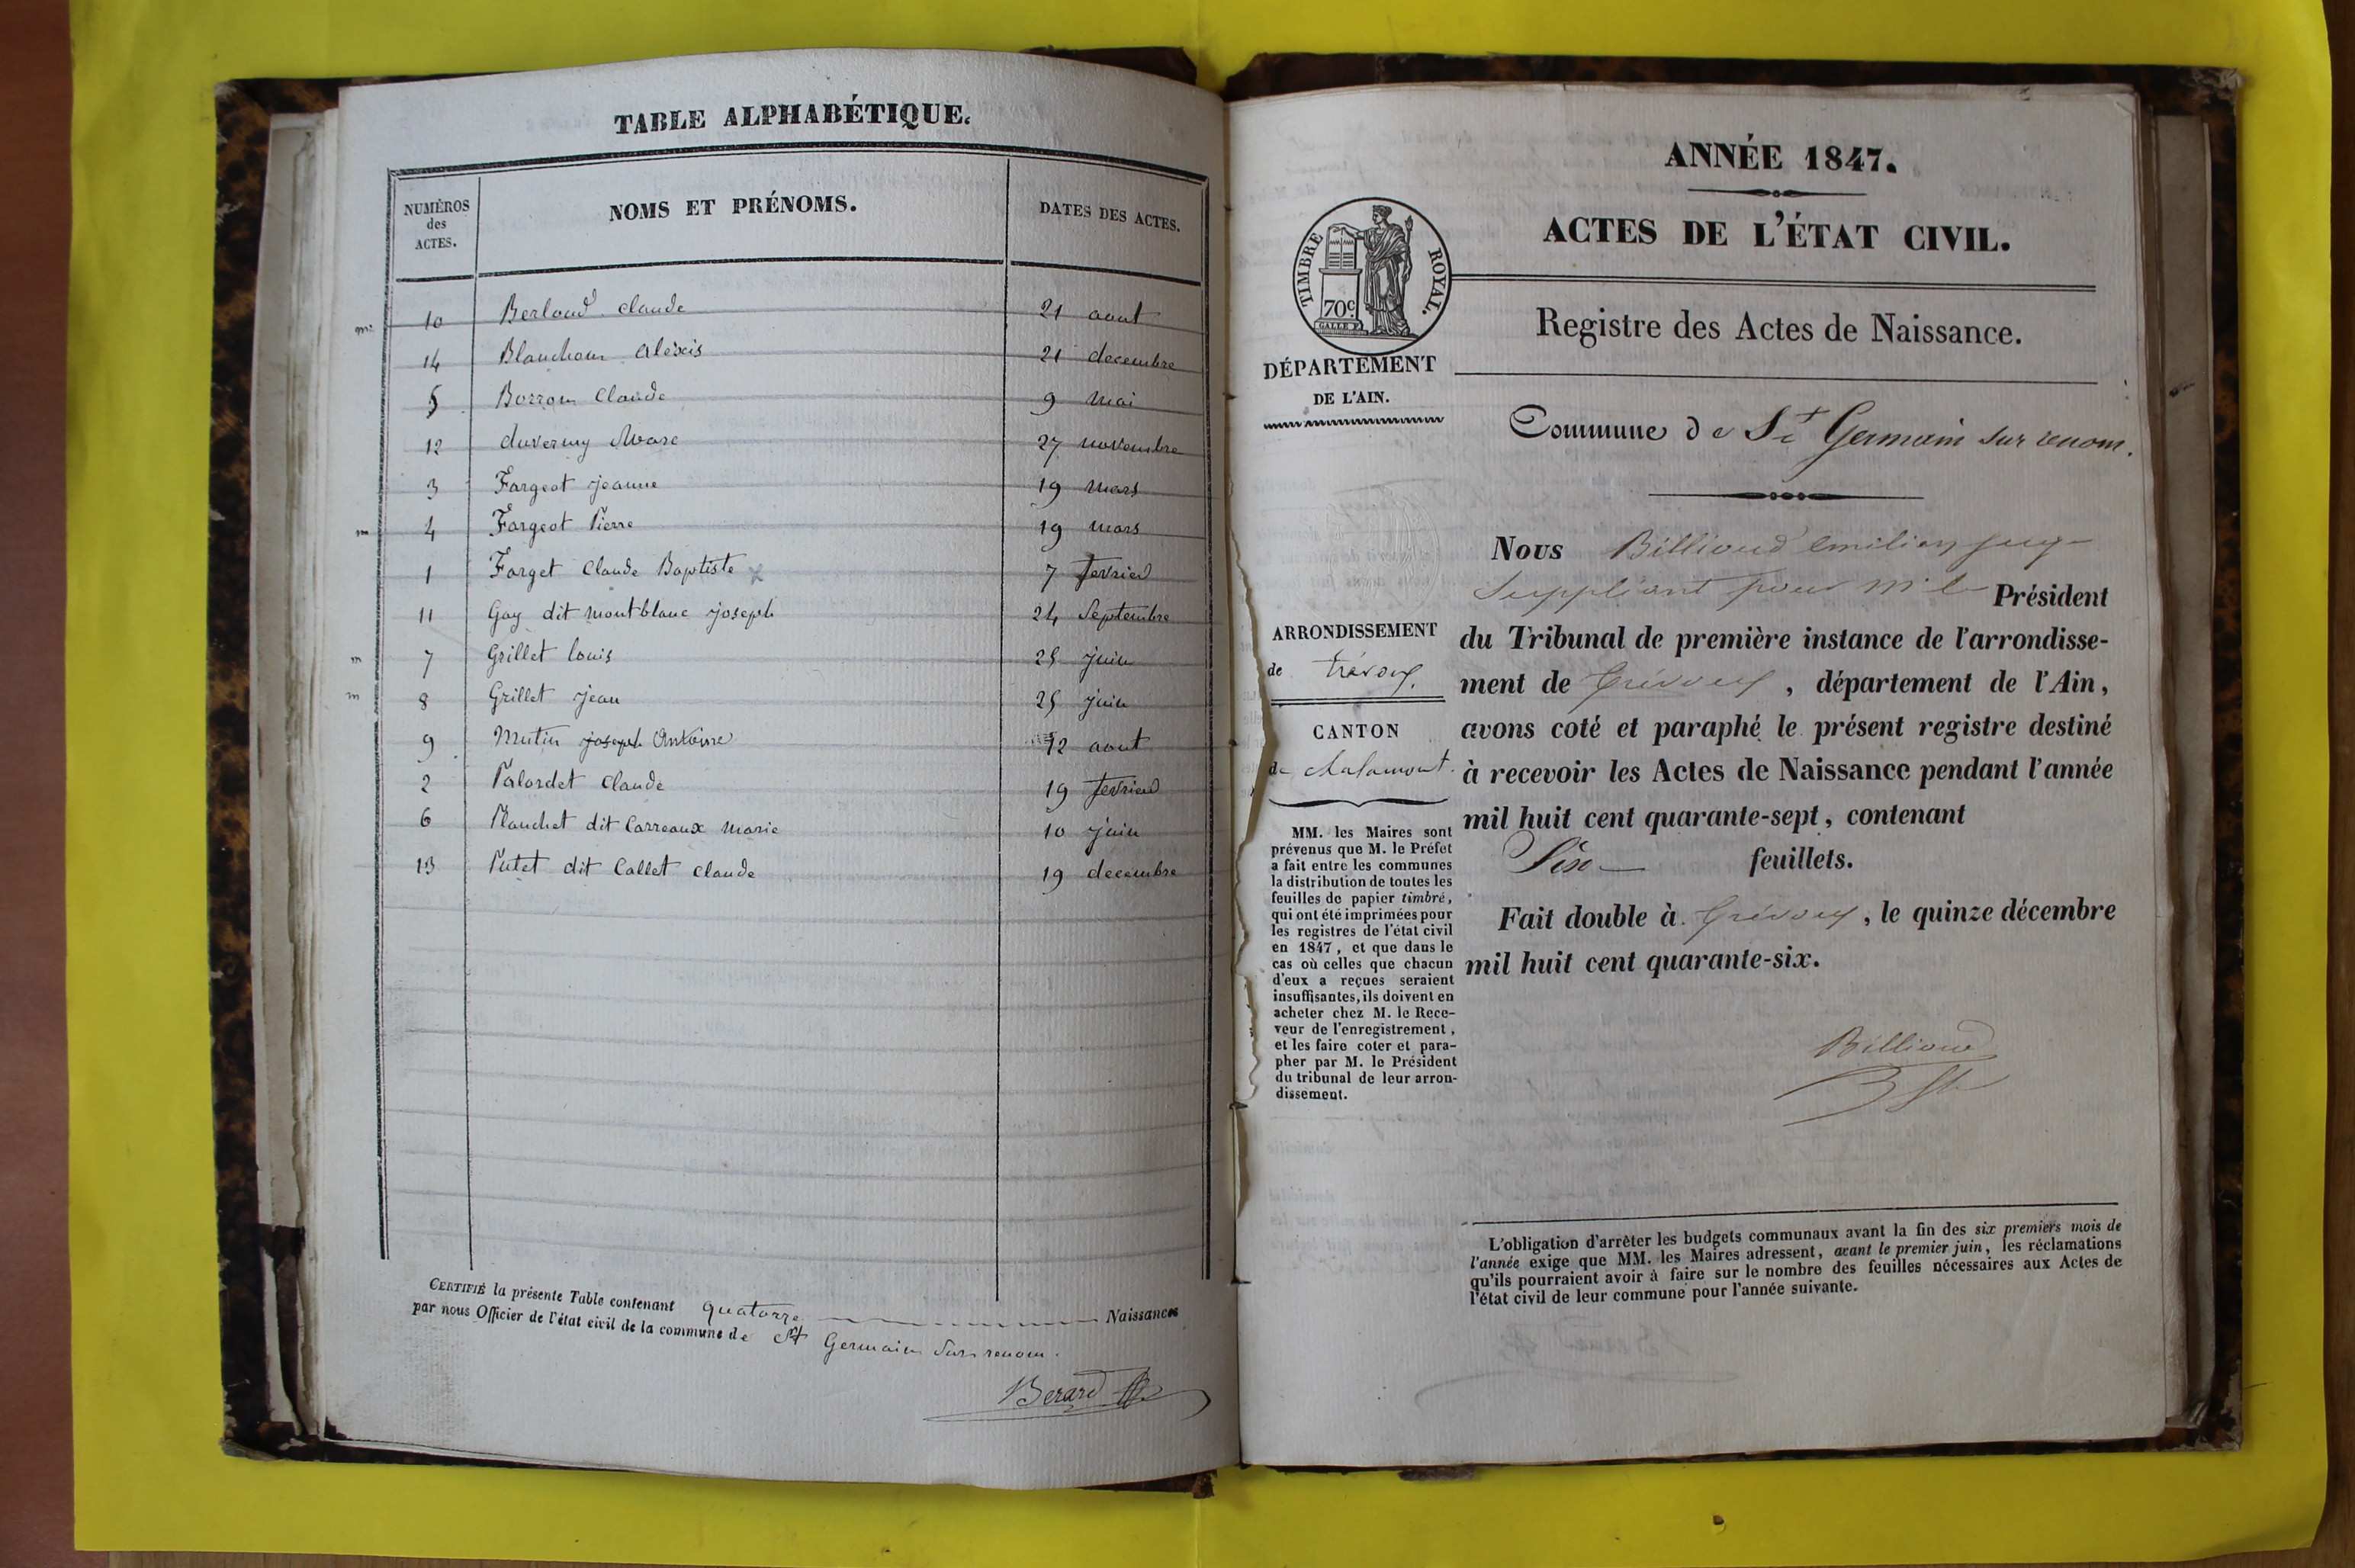 TABLE ALPHABÉTIQUE.
NUMÉROS des ACTES. NOMS ET PRÉNOMS. DATES DES ACTES.
m 10 Berloud Claude 21 aout
14 Blanchon Alexis 21 decembre
5 Borron Claude 9 mai
12 duverny Marc 27 novembre
3 Fargeot jeanne 19 mars
m 4 Fargeot Pierre 19 mars
1 Forget Claude Baptiste x 7 fevrier
11 Gay dit montblanc joseph 24 Septembre
m 7 Grillet louis 25 juin
m 8 Grillet jean 25 juin
9 Mutin joseph Antoine 12 aout
2 Palordet Claude 19 fevrier
6 Planchet dit Carreaux marie 10 juin
13 Putet dit Collet claude 19 decembre
CERTIFIÉ la présente Table contenant quatorze Naissances
par nous Officier de l'état civil de la commune de St Germain Sur renom.
Berard
ANNÉE 1847.
ACTES DE L'ÉTAT CIVIL.
TIMBRE ROYAL.
70c
Registre des Actes de Naissance.
DÉPARTEMENT
DE L'AIN.
Commune de St Germain sur renom.
ARRONDISSEMENT
de trévoux.
CANTON
de chalamont.
MM. les Maires sont
prévenus que M. le Préfet
a fait entre les communes
la distribution de toutes les
feuilles de papier timbré,
qui ont été imprimées pour
les registres de l'état civil
en 1847, et que dans le
cas où celles que chacun
d'eux a reçues seraient
insuffisantes, ils doivent en
acheter chez M. le Rece-
veur de l'enregistrement,
et les faire coter et para-
pher par M. le Président
du tribunal de leur arron-
dissement.
Nous Billioud emilien juge
Suppléant pour mr le Président
du Tribunal de première instance de l'arrondisse-
ment de Trévoux, département de l'Ain,
avons coté et paraphé le présent registre destiné
à recevoir les Actes de Naissance pendant l'année
mil huit cent quarante-sept, contenant
Six feuillets.
Fait double à Trévoux, le quinze décembre
mil huit cent quarante-six.
Billioud
L'obligation d'arrêter les budgets communaux avant la fin des six premiers mois de
l'année exige que MM. les Maires adressent, avant le premier juin, les réclamations
qu'ils pourraient avoir à faire sur le nombre des feuilles nécessaires aux Actes de
l'état civil de leur commune pour l'année suivante.